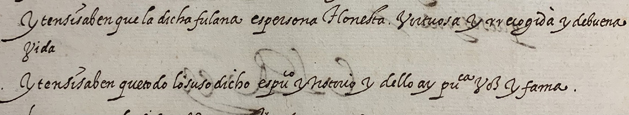 Y tensisaben que la dicha fulana es persona Honesta. Virtuosa y rrecogida y debuena
Vida
Y tensisaben quetodo losusodicho es puo y notorio y dello ay puca Voz y fama.